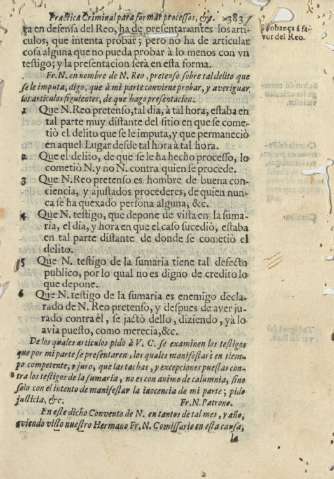 Practica Criminal para formar processos, &c. 383
ga en defensa del Reo, ha de presentar antes los arti-
culos, que intenta probar; pero no ha de articular
cosa alguna que no pueda probar à lo menos con vn
testigo; y la presentacion serà en esta forma.
Probança à fa-
vor del Reo.
Fr. N. en nombre de N. Reo, pretenso sobre tal delito que
se le imputa, digo, que à mi parte conviene probar, y averiguar
los articulos siguientes, de que hago presentacion:
1 Que N. Reo pretenso, tal dia, à tal hora, estaba en
tal parte muy distante del sitio en que se come-
tiò el delito que se le imputa, y que permaneciò
en aquel Lugar desde tal hora à tal hora.
2 Que el delito, de que se le ha hecho processo, lo
cometiò N. y no N. contra quien se procede.
3 Que N. Reo pretenso es hombre de buena con-
ciencia, y ajustados procederes, de quien nun-
ca se ha quexado persona alguna, &c.
4 Que N. testigo, que depone de vista en la suma-
ria, el dia, y hora en que el caso sucediò, estaba
en tal parte distante de donde se cometiò el
delito.
5 Que N. testigo de la sumaria tiene tal defecto
publico, por lo qual no es digno de credito lo
que depone.
6 Que N. testigo de la sumaria es enemigo decla-
rado de N. Reo pretenso, y despues de aver ju-
rado contra èl, se jactò dello, diziendo, ya lo
avia puesto, como merecia, &c.
De los quales articulos pido à V. C. se examinen los testigos
que por mi parte se presentaren, los quales manifestarè en tiem-
po competente, y juro, que las tachas, y excepciones puestas con-
tra los testigos de la sumaria, no es con animo de calumnia, sino
solo con el intento de manifestar la inocencia de mi parte; pido
justicia, &c. Fr. N. Patrono.
En este dicho Convento de N. en tantos de tal mes, y año,
aviendo visto nuestro Hermano Fr. N. Comissario en esta causa,
la